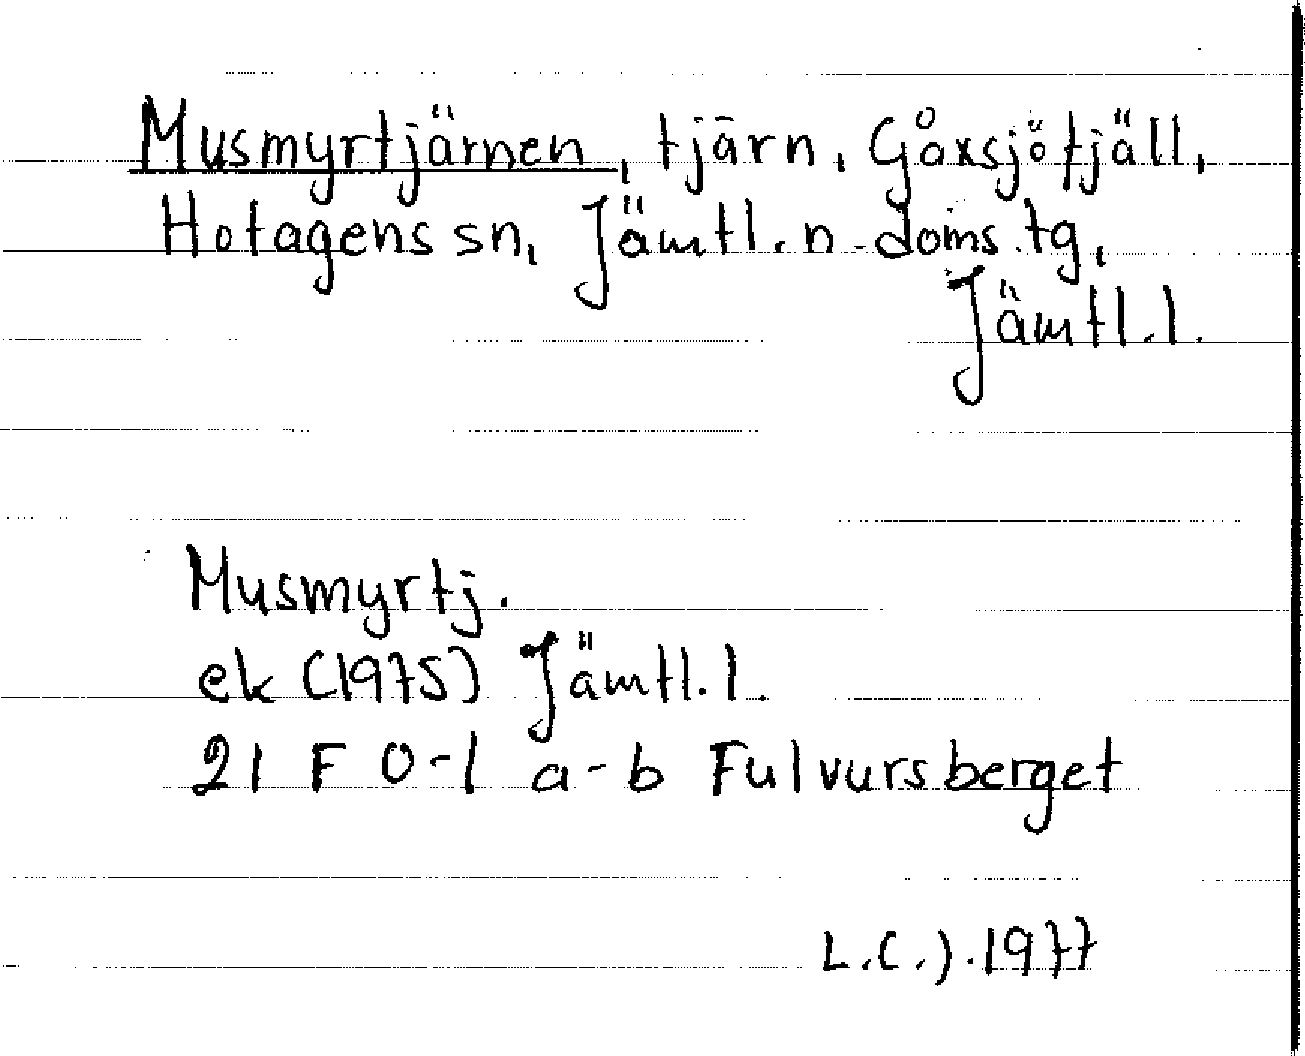 Musmyrtjärnen, tjärn, Gåxsjöfjäll,
Hotagens sn, Jämtl. n. doms. tg,
Jämtl. l.
Musmyrtj.
ek (1975) Jämtl. l.
21 F 0-1 a-b Fulvursberget
L.C.J. 1977